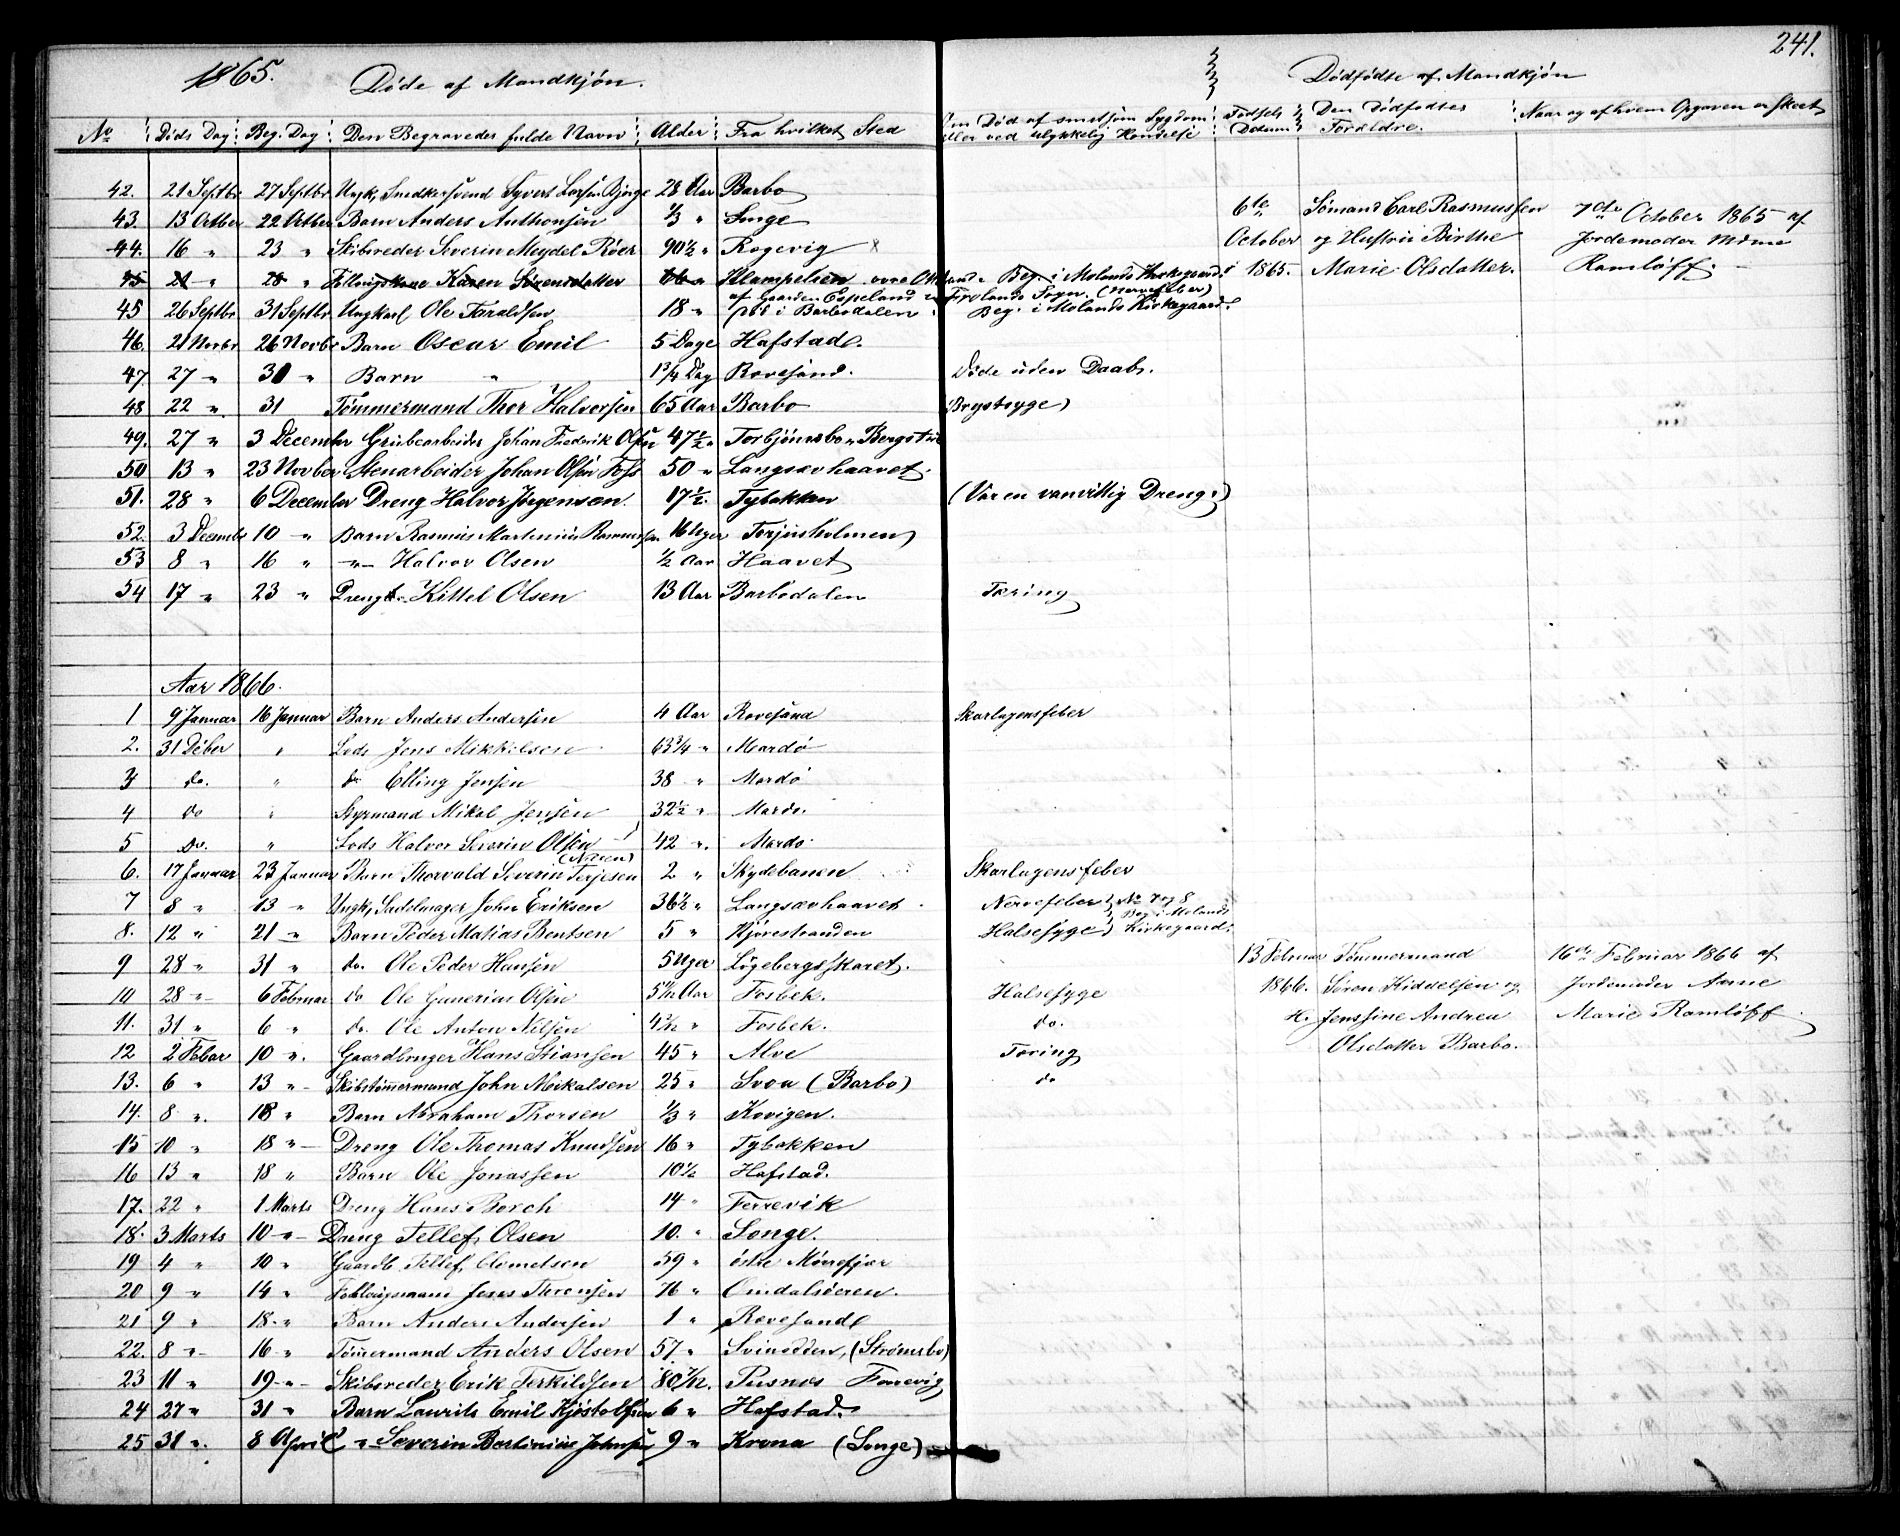 241.
1865. Døde af Mandkjøn. Dødfødte af Mandkjøn
No Døds Dag Beg. Dag Den Begravedes fulde Navn Alder Fra hvilket Sted Om Død af smitsom Sygdom eller ved ulykkelig Hændelse Fødsels Datum Den Dødfødtes Forældre. Naar og af hvem Opgaven er skeet
42. 21 Septbr 27 Septbr Ungk. Snedkersvend Syvert Larsen 28 Aar Barbo
43. 13 Octber 22 Octber Barn Anders Anthonsen 1/3 " Songe
44. 16 " 23 " Skibsreder Severin Meydel Röer 90 1/2 " Rogevig x
45 21 " 28 " Karen Sörensdatter 66 " Klampelsen Beg. i Molands Kirkegaard.
af Gaarden Espeland i Frolands Sogn. (Nervefeber)
45 26 Septbr 31 Septbr Ungkarl Ole Taraldsen 18 " i Barbodalen Beg. i Molands Kirkegaard.
46. 21 Novbr 26 Novbr Barn Oscar Emil 5 Dage Hafstad.
47 27 " 30 " Barn " 1 3/4 Dag Revesand. Døde uden Daab.
48 22 " 31 Tømmermand Thor Halvorsen 65 Aar Barbo Brystsyge)
49. 27 " 3 December Grubearbeider Johan Frederik Olsen 47 1/2 " Torbjönsbo
50 13 " 23 Novber Stenarbeider Johan Olsen Foss 50 " Langsævhaavet.
51. 28 " 6 December Dreng Halvor Jörgensen. 17 1/2. Tybakken (Var en vanvittig Dreng.)
52. 3 Decembr 10 " Barn Rasmus Martinius Rasmussen 16 Uger Torjusholmen
53 8 " 16 " " Halvor Olsen 1/2 Aar Haavet
54 17 " 23 " Dreng Kittel Olsen 13 Aar Barbodalen Tæring
6te October 1865. Sömand Carl Rasmussen og Hustru Birthe Marie Olsdatter. 7de October 1865 af Jordemoder Ramløff.
Aar 1866.
1 9 Januar 16 Januar Barn Anders Andersen 4 Aar Revesand Skarlagensfeber
2. 31 Deber " Lods Jens Mikkelsen 63 3/4 " Mærdö
3 do. " do Elling Jensen 38 " Mærdö
4 do " Styrmand Mikal Jensen 32 1/2 " Mærdö.
5 do. " Lods Halvor Severin Olsen 42 " Mærdö
6. 17 Januar 23 Januar Barn Thorvald Severin Terjesen 2 " Skydebanen Skarlagensfeber
7 8 " 13 " Ungk. Sadelmager John Eriksen 36 1/2 " Langsævhaavet Nervefeber } No 7 og 8
8. 12 " 21 " Barn Peder Matias Bentsen 5 " Kjörestranden Halsesyge } Beg. i Molands Kirkegaard.
9 28 " 31 " do. Ole Peder Hansen 5 Uger Lögebergsskaret.
10 28 " 6 Februar do Ole Gunerius Olsen 5 1/12 Aar Fosbek. Halsesyge
11. 31 " 6 " do. Ole Anton Nilsen 4 3/12 " Fosbek. do.
12 2 Febar 10 ". Gaardbruger Hans Stiansen 45 " Alve Tæring
13. 6 " 13 " Skibstömmermand John Mikalsen 25 " Svoa (Barbo) do
14. 8 ". 18 " Barn Abraham Thorsen 1/3 " Kovigen.
15 10 " 18 " Dreng Ole Thomas Knudsen 16 " Tybakken
16 13 " 18 " Barn Ole Jonassen 10 1/2 Hafstad.
17. 22 " 1 Marts Dreng Hans Borch 14 " Ferrevik
18. 3 Marts 10 " Dreng Tellef Olsen 10. " Songe.
19 4 " 10 " Gaardb. Tellef Clemetsen 59 " östre
20 9 " 14 " Jens Thronsen 76 " Omdalsören.
21 9 " 18 " Barn Anders Andersen 1 " Revesand
22. 8 " 16 " Tömmermand Anders Olsen 57 " Svinodden, (Strömsbo)
23 11 " 19 " Skibsreder Erik Terkildsen 80 7/12. Pusnes Færevig
24 27 " 31 " Barn Laurits Emil Kjöstolfsen 6 " Hafstad.
25 31 ". 8 April " Severin Bertinius Johnsen 9 " Krona (Songe)
13 Februar 1866. Tømmermand Sören Kiddelsen og H. Jenssine Andrea Olsdatter Barbo. 16de Februar 1866 af Jordemoder Anne Marie Ramløff.